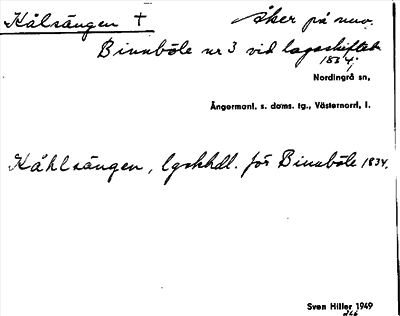 Kålsängen † åker på nuv.
Binnböle nr 3 vid lagaskiftet
1834;
Nordingrå sn,
Ångermanl. s. doms. tg., Västernorrl. l.
Kåhlsängen, lgskhdl. för Binnböle 1834.
Sven Hiller 1949
266